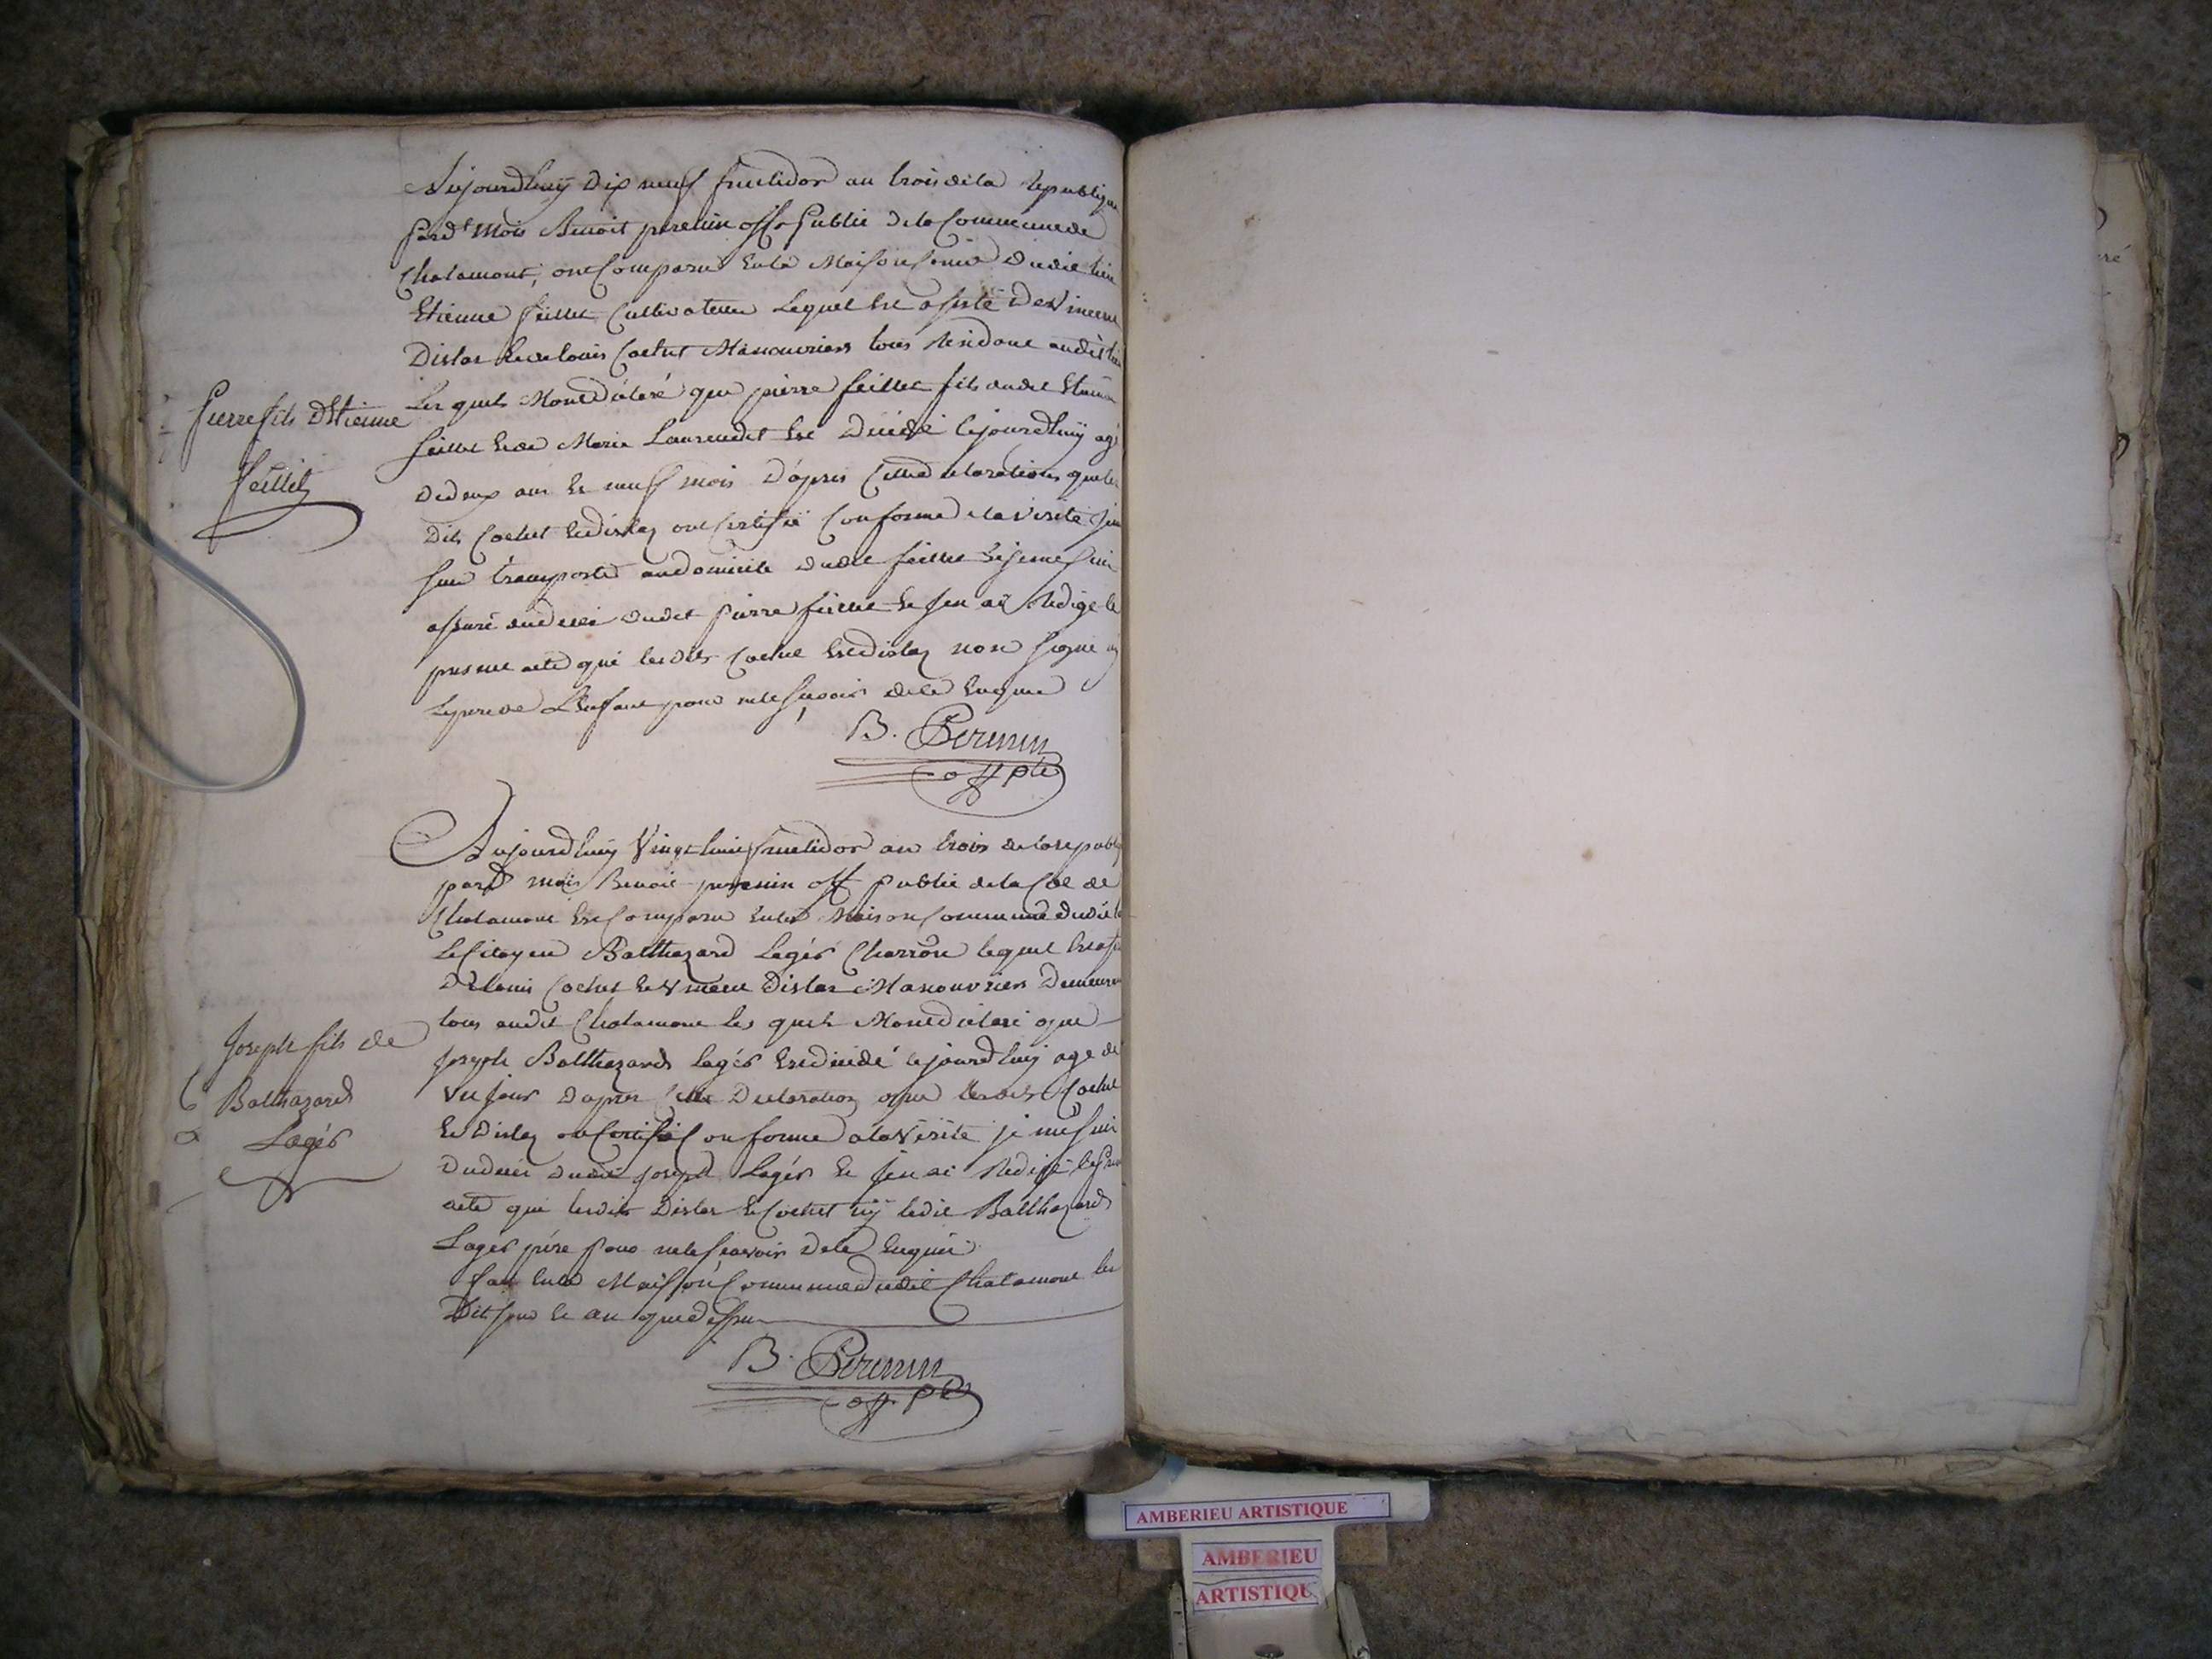 Aujourdhuÿ Dix neuf fructidor an trois de la republique
pard^t Mois Benoit perenin off^r Public de la Commune de
Chatamont, ont Comparu En la Maison Comûe dudit lieu
Etienne feillet Cultivateur Lequel Est assisté De Vincent
Dislas Et de louis Cochet Manouvriers tous Residant audit lieu
Les quels M'ont déclaré que pierre feillet fils dudit Etienne
feillet Et de Marie Laurendet Est Décédé Cejourdhuÿ agé
De deux ans Et neuf mois D'après Cette déclaration que les
Dits Cochet Et Dislas ont Certifié Conforme a la Vérité Je me
suis transporté au domicile dudit feillet Et je me suis
assuré du décès dudit Pierre feillet Et J'en ai Rédigé le
present acte que lesdits Cochet Et Dislas non signé nÿ
Le pere de L'Enfant pour ne le sçavoir de ce Enquis
B. Perenin
off pu
Pierre fils D'Etienne
Feillet
Aujourdhuÿ Vingt huit fructidor an trois de la republi
pard^t mois Benoit perenin off Public de la Cne de
Chatamont Est Comparu En la Maison Commune dudit l
Le Citoyen Balthazard Lagér Charron lequel Est assi
De louis Cochet Et Vincent Dislas Manouvriers Demeuran
tous audit Chatamont les quels M'ont déclaré que
Joseph Balthazard Lagér Est décédé Cejourdhuÿ agé de
Un Jour D'après Cette Declaration que lesdits Cochet
Et Dislas ont Certifié Conforme a la Vérité je me suis
Du décès dudit Joseph Lagér Et J'en ai Rédigé le pres
acte que lesdits Dislas Et Cochet nÿ ledit Balthazard
Lagér pére pour ne le sçavoir de ce Enquis
fait En la Maison Commune dudit Chatamont les
Dit jour Et an que dessus
B. Perenin
off. pu
Joseph fils de
Balthazard
Lagér
AMBERIEU ARTISTIQUE
AMBERIEU
ARTISTIQU